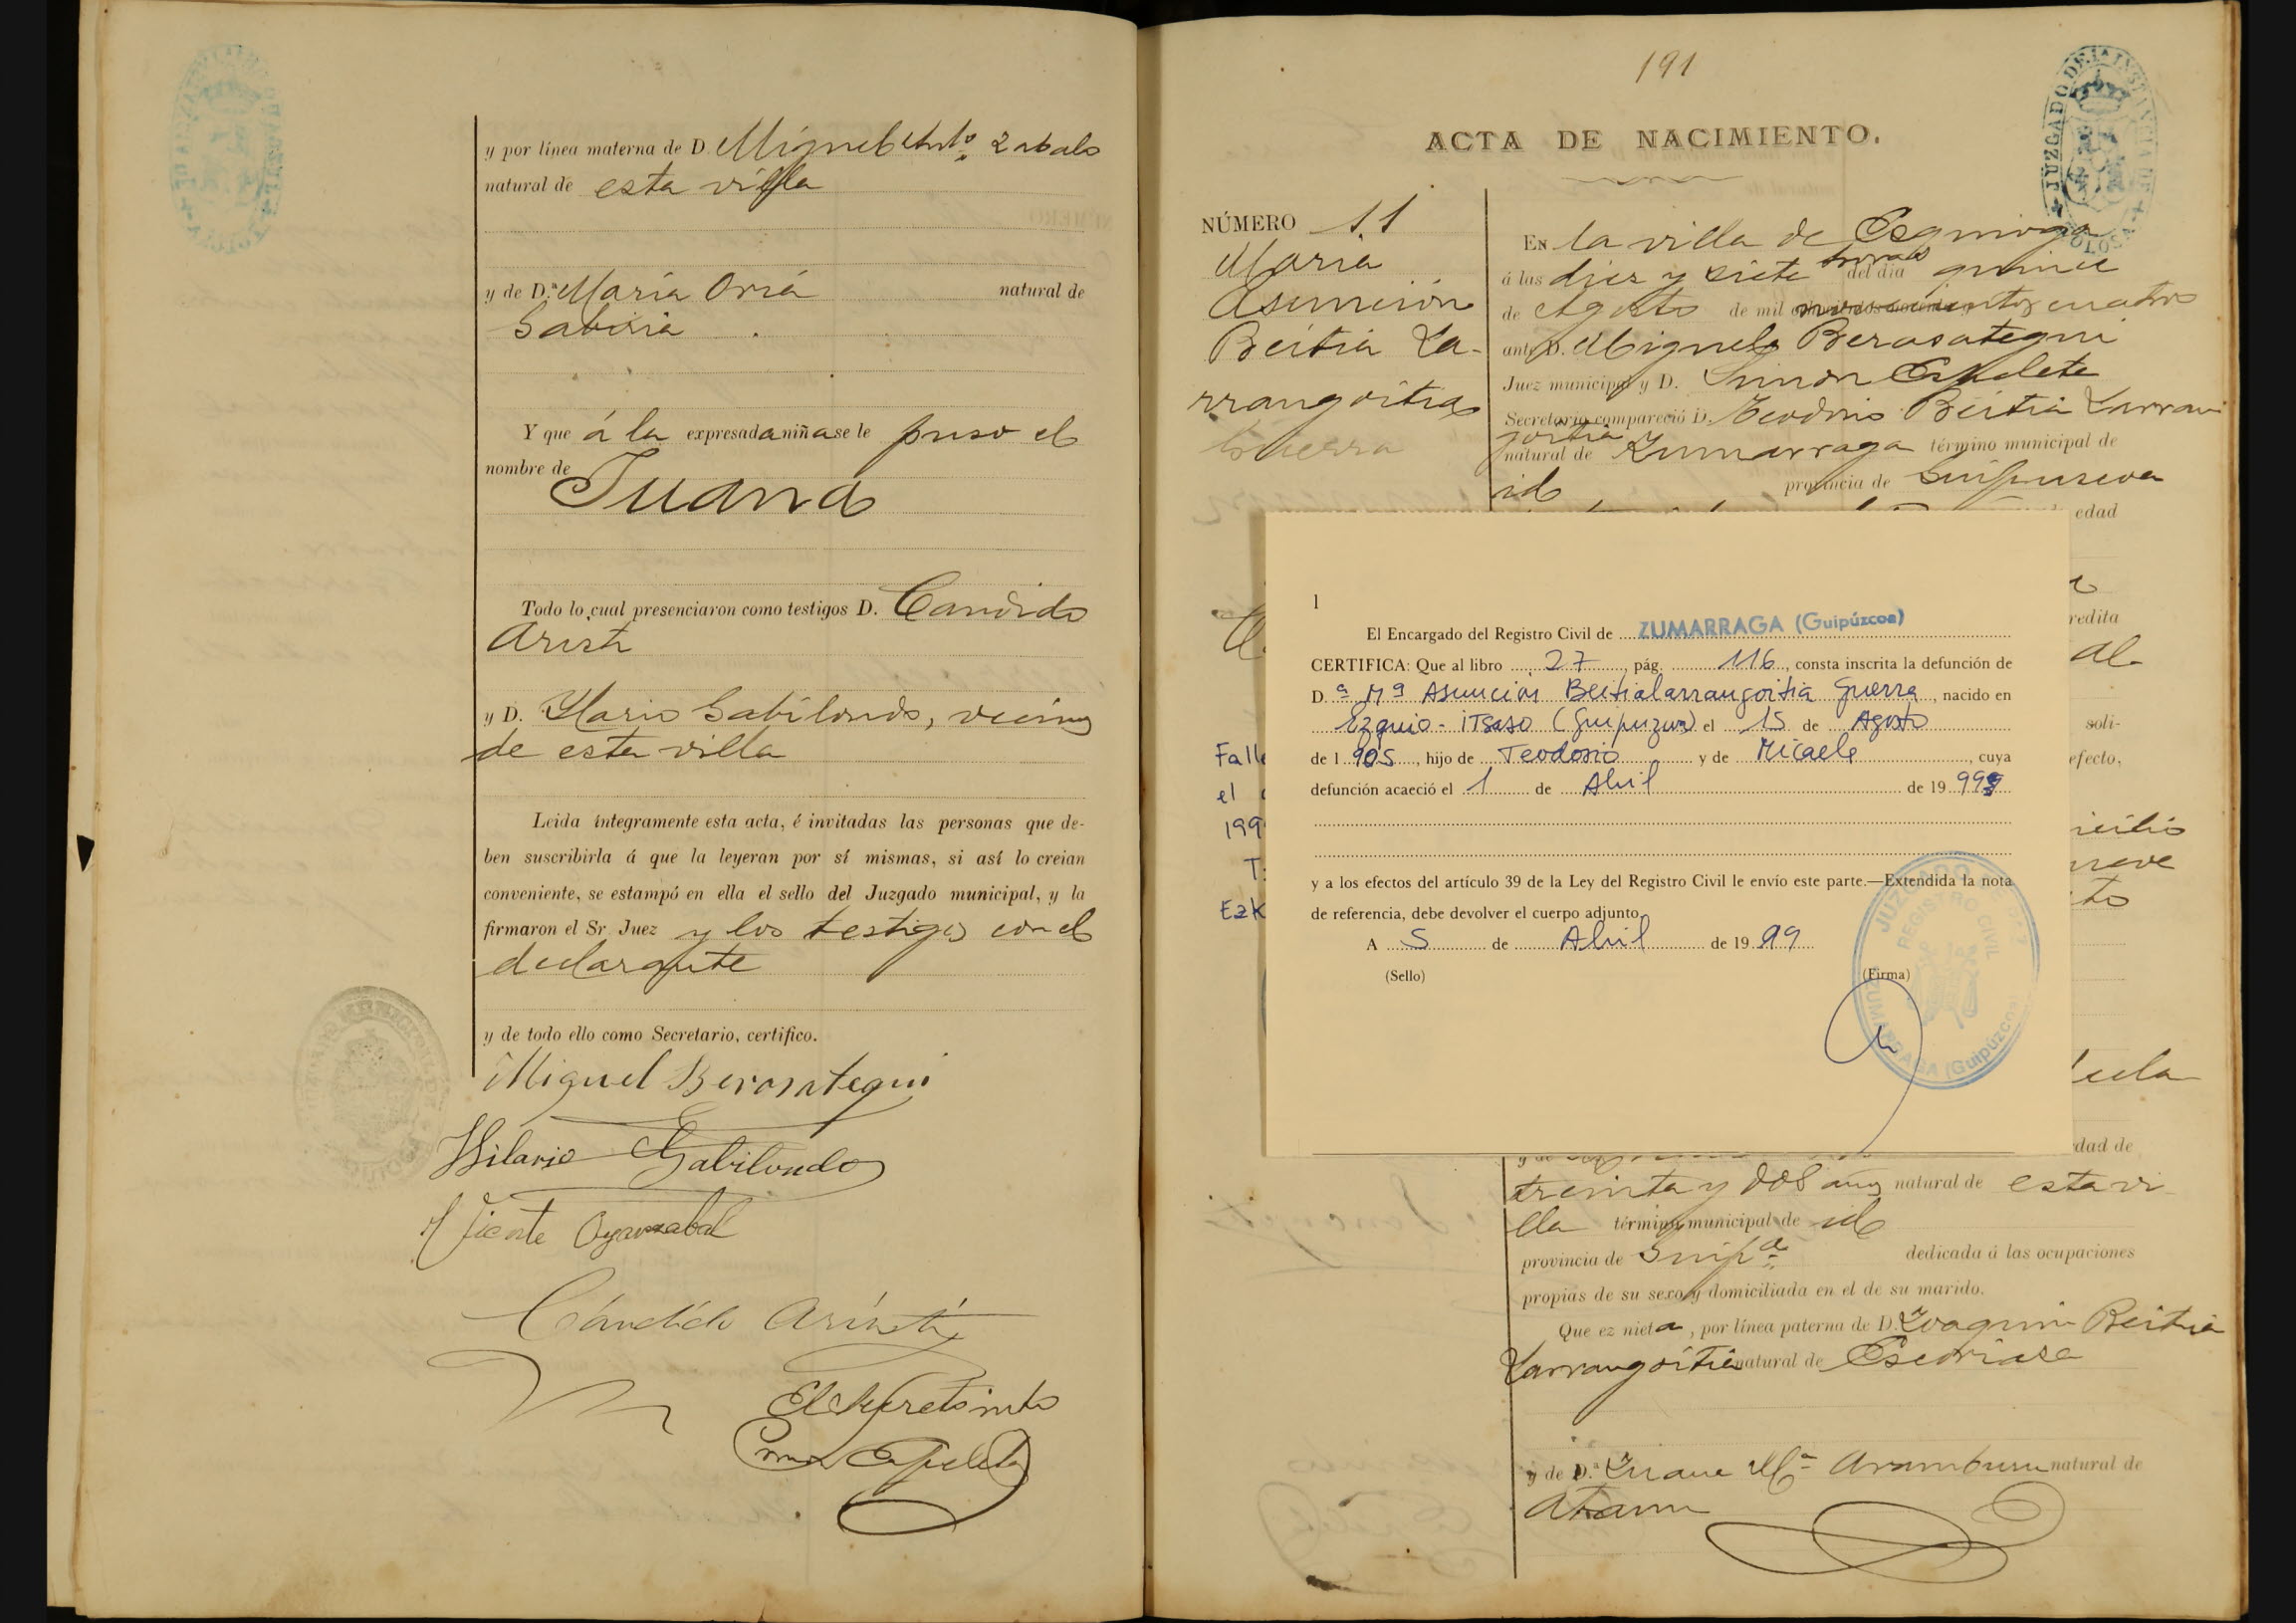 y por línea materna de D. Miguel Anto. Zabalo
natural de esta villa
y de D.ª María Oria natural de
Gabiria
Y que á la expresada niña se le puso el
nombre de
Juana
Todo lo cual presenciaron como testigos D. Candido
Aristi
y D. Ilario Gabilondo, vecinos
de esta villa
Leida íntegramente esta acta, é invitadas las personas que de-
ben suscribirla á que la leyeran por sí mismas, si así lo creian
conveniente, se estampó en ella el sello del Juzgado municipal, y la
firmaron el Sr. Juez y los testigos con el
declarante
y de todo ello como Secretario, certifico.
Miguel Berasategui
Hilario Gabilondo
Vicente Oyarzabal
Cándido Aristi
191
ACTA DE NACIMIENTO.
JUZGADO DE 1ª INSTANCIA DE TOLOSA
NÚMERO 11
María
Asunción
Beitia La-
rrangoitia
Guerra
EN la villa de Ezquioga
á las diez y siete horas del dia quince
de Agosto de mil novecientos cuatro
ante D. Miguel Berasategui
Juez municipal y D. Simon Apalete
Secretario compareció D. Teodosio Beitia Larran
goitia
natural de Zumarraga término municipal de
id provincia de Guipuzcoa
edad
redita
soli-
efecto,
Falle
el
199
Ezk
1
El Encargado del Registro Civil de ZUMARRAGA (Guipúzcoa)
CERTIFICA: Que al libro 27, pág. 116, consta inscrita la defunción de
D.ª Mª Asunción Beitialarrangoitia Guerra, nacido en
Ezquio-itsaso (Guipuzcoa) el 15 de Agosto
de 1905, hijo de Teodosio y de Micaela, cuya
defunción acaeció el 1 de Abril de 19 999
y a los efectos del artículo 39 de la Ley del Registro Civil le envío este parte.—Extendida la nota
de referencia, debe devolver el cuerpo adjunto.
A 5 de Abril de 19 99
(Sello) (Firma)
JUZGADO DE PAZ
REGISTRO CIVIL
ZUMARRAGA (Guipúzcoa)
edad de
treinta y dos años natural de esta vi
lla término municipal de id
provincia de Guipª dedicada á las ocupaciones
propias de su sexo y domiciliada en el de su marido.
Que es nieta, por línea paterna de D. Joaquin Beitia
Larrangoitia natural de Escoriaza
y de D.ª Juana Mª Aramburu natural de
Ataun